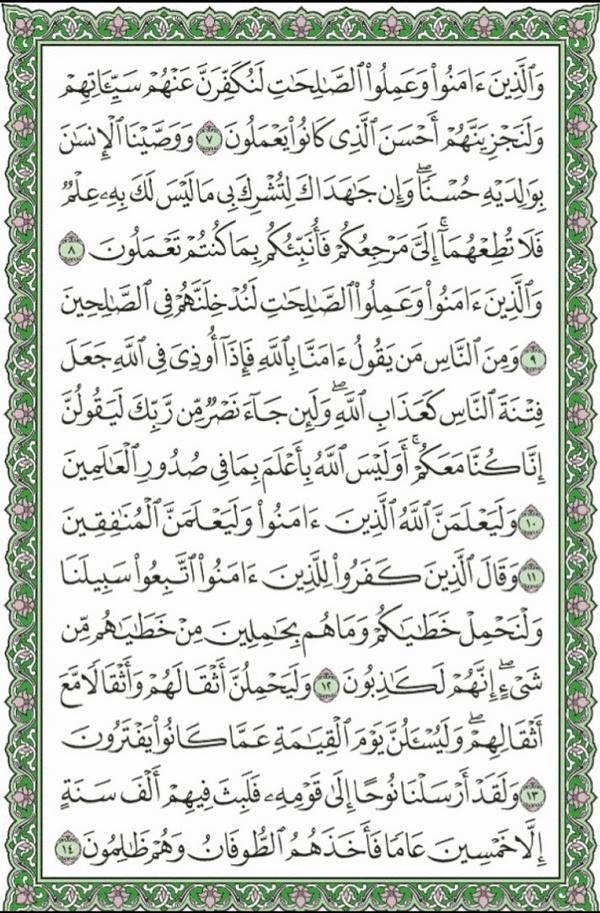 وَٱلَّذِينَ ءَامَنُواْ وَعَمِلُواْ ٱلصَّٰلِحَٰتِ لَنُكَفِّرَنَّ عَنۡهُمۡ سَيِّـَٔاتِهِمۡ
وَلَنَجۡزِيَنَّهُمۡ أَحۡسَنَ ٱلَّذِى كَانُواْ يَعۡمَلُونَ ٧ وَوَصَّيۡنَا ٱلۡإِنسَٰنَ
بِوَٰلِدَيۡهِ حُسۡنٗاۖ وَإِن جَٰهَدَاكَ لِتُشۡرِكَ بِى مَا لَيۡسَ لَكَ بِهِۦ عِلۡمٞ
فَلَا تُطِعۡهُمَآۚ إِلَىَّ مَرۡجِعُكُمۡ فَأُنَبِّئُكُم بِمَا كُنتُمۡ تَعۡمَلُونَ ٨
وَٱلَّذِينَ ءَامَنُواْ وَعَمِلُواْ ٱلصَّٰلِحَٰتِ لَنُدۡخِلَنَّهُمۡ فِى ٱلصَّٰلِحِينَ
٩ وَمِنَ ٱلنَّاسِ مَن يَقُولُ ءَامَنَّا بِٱللَّهِ فَإِذَآ أُوذِىَ فِى ٱللَّهِ جَعَلَ
فِتۡنَةَ ٱلنَّاسِ كَعَذَابِ ٱللَّهِۖ وَلَئِن جَآءَ نَصۡرٞ مِّن رَّبِّكَ لَيَقُولُنَّ
إِنَّا كُنَّا مَعَكُمۡۚ أَوَلَيۡسَ ٱللَّهُ بِأَعۡلَمَ بِمَا فِى صُدُورِ ٱلۡعَٰلَمِينَ
١٠ وَلَيَعۡلَمَنَّ ٱللَّهُ ٱلَّذِينَ ءَامَنُواْ وَلَيَعۡلَمَنَّ ٱلۡمُنَٰفِقِينَ
١١ وَقَالَ ٱلَّذِينَ كَفَرُواْ لِلَّذِينَ ءَامَنُواْ ٱتَّبِعُواْ سَبِيلَنَا
وَلۡنَحۡمِلۡ خَطَٰيَٰكُمۡ وَمَا هُم بِحَٰمِلِينَ مِنۡ خَطَٰيَٰهُم مِّن
شَىۡءٍۖ إِنَّهُمۡ لَكَٰذِبُونَ ١٢ وَلَيَحۡمِلُنَّ أَثۡقَالَهُمۡ وَأَثۡقَالٗا مَّعَ
أَثۡقَالِهِمۡۖ وَلَيُسۡـَٔلُنَّ يَوۡمَ ٱلۡقِيَٰمَةِ عَمَّا كَانُواْ يَفۡتَرُونَ
١٣ وَلَقَدۡ أَرۡسَلۡنَا نُوحًا إِلَىٰ قَوۡمِهِۦ فَلَبِثَ فِيهِمۡ أَلۡفَ سَنَةٍ
إِلَّا خَمۡسِينَ عَامٗا فَأَخَذَهُمُ ٱلطُّوفَانُ وَهُمۡ ظَٰلِمُونَ ١٤